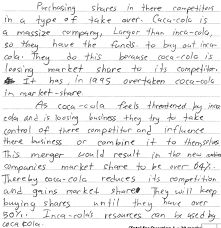 Purchasing shares in there competitors
in a type of take over. Coca-cola is
a massize company, Larger than inca-cola,
so they have the funds to buy out inca-
cola. They do this because coca-cola is
loosing market share to its competitor.
It has, in 1995 overtaken coca-cola
in market-share.
As coca-cola feels threatened by inca
cola and is loosing business they try to take
control of there competitor and influence
there business or combine it to themselves
This merger would result in the new
companies market share to be over 64%.
Thereby coca-cola reduces its competition
and gains market share. They will keep
buying shares until they have over
50%. Inca-cola's resources can be used by
coca cola.